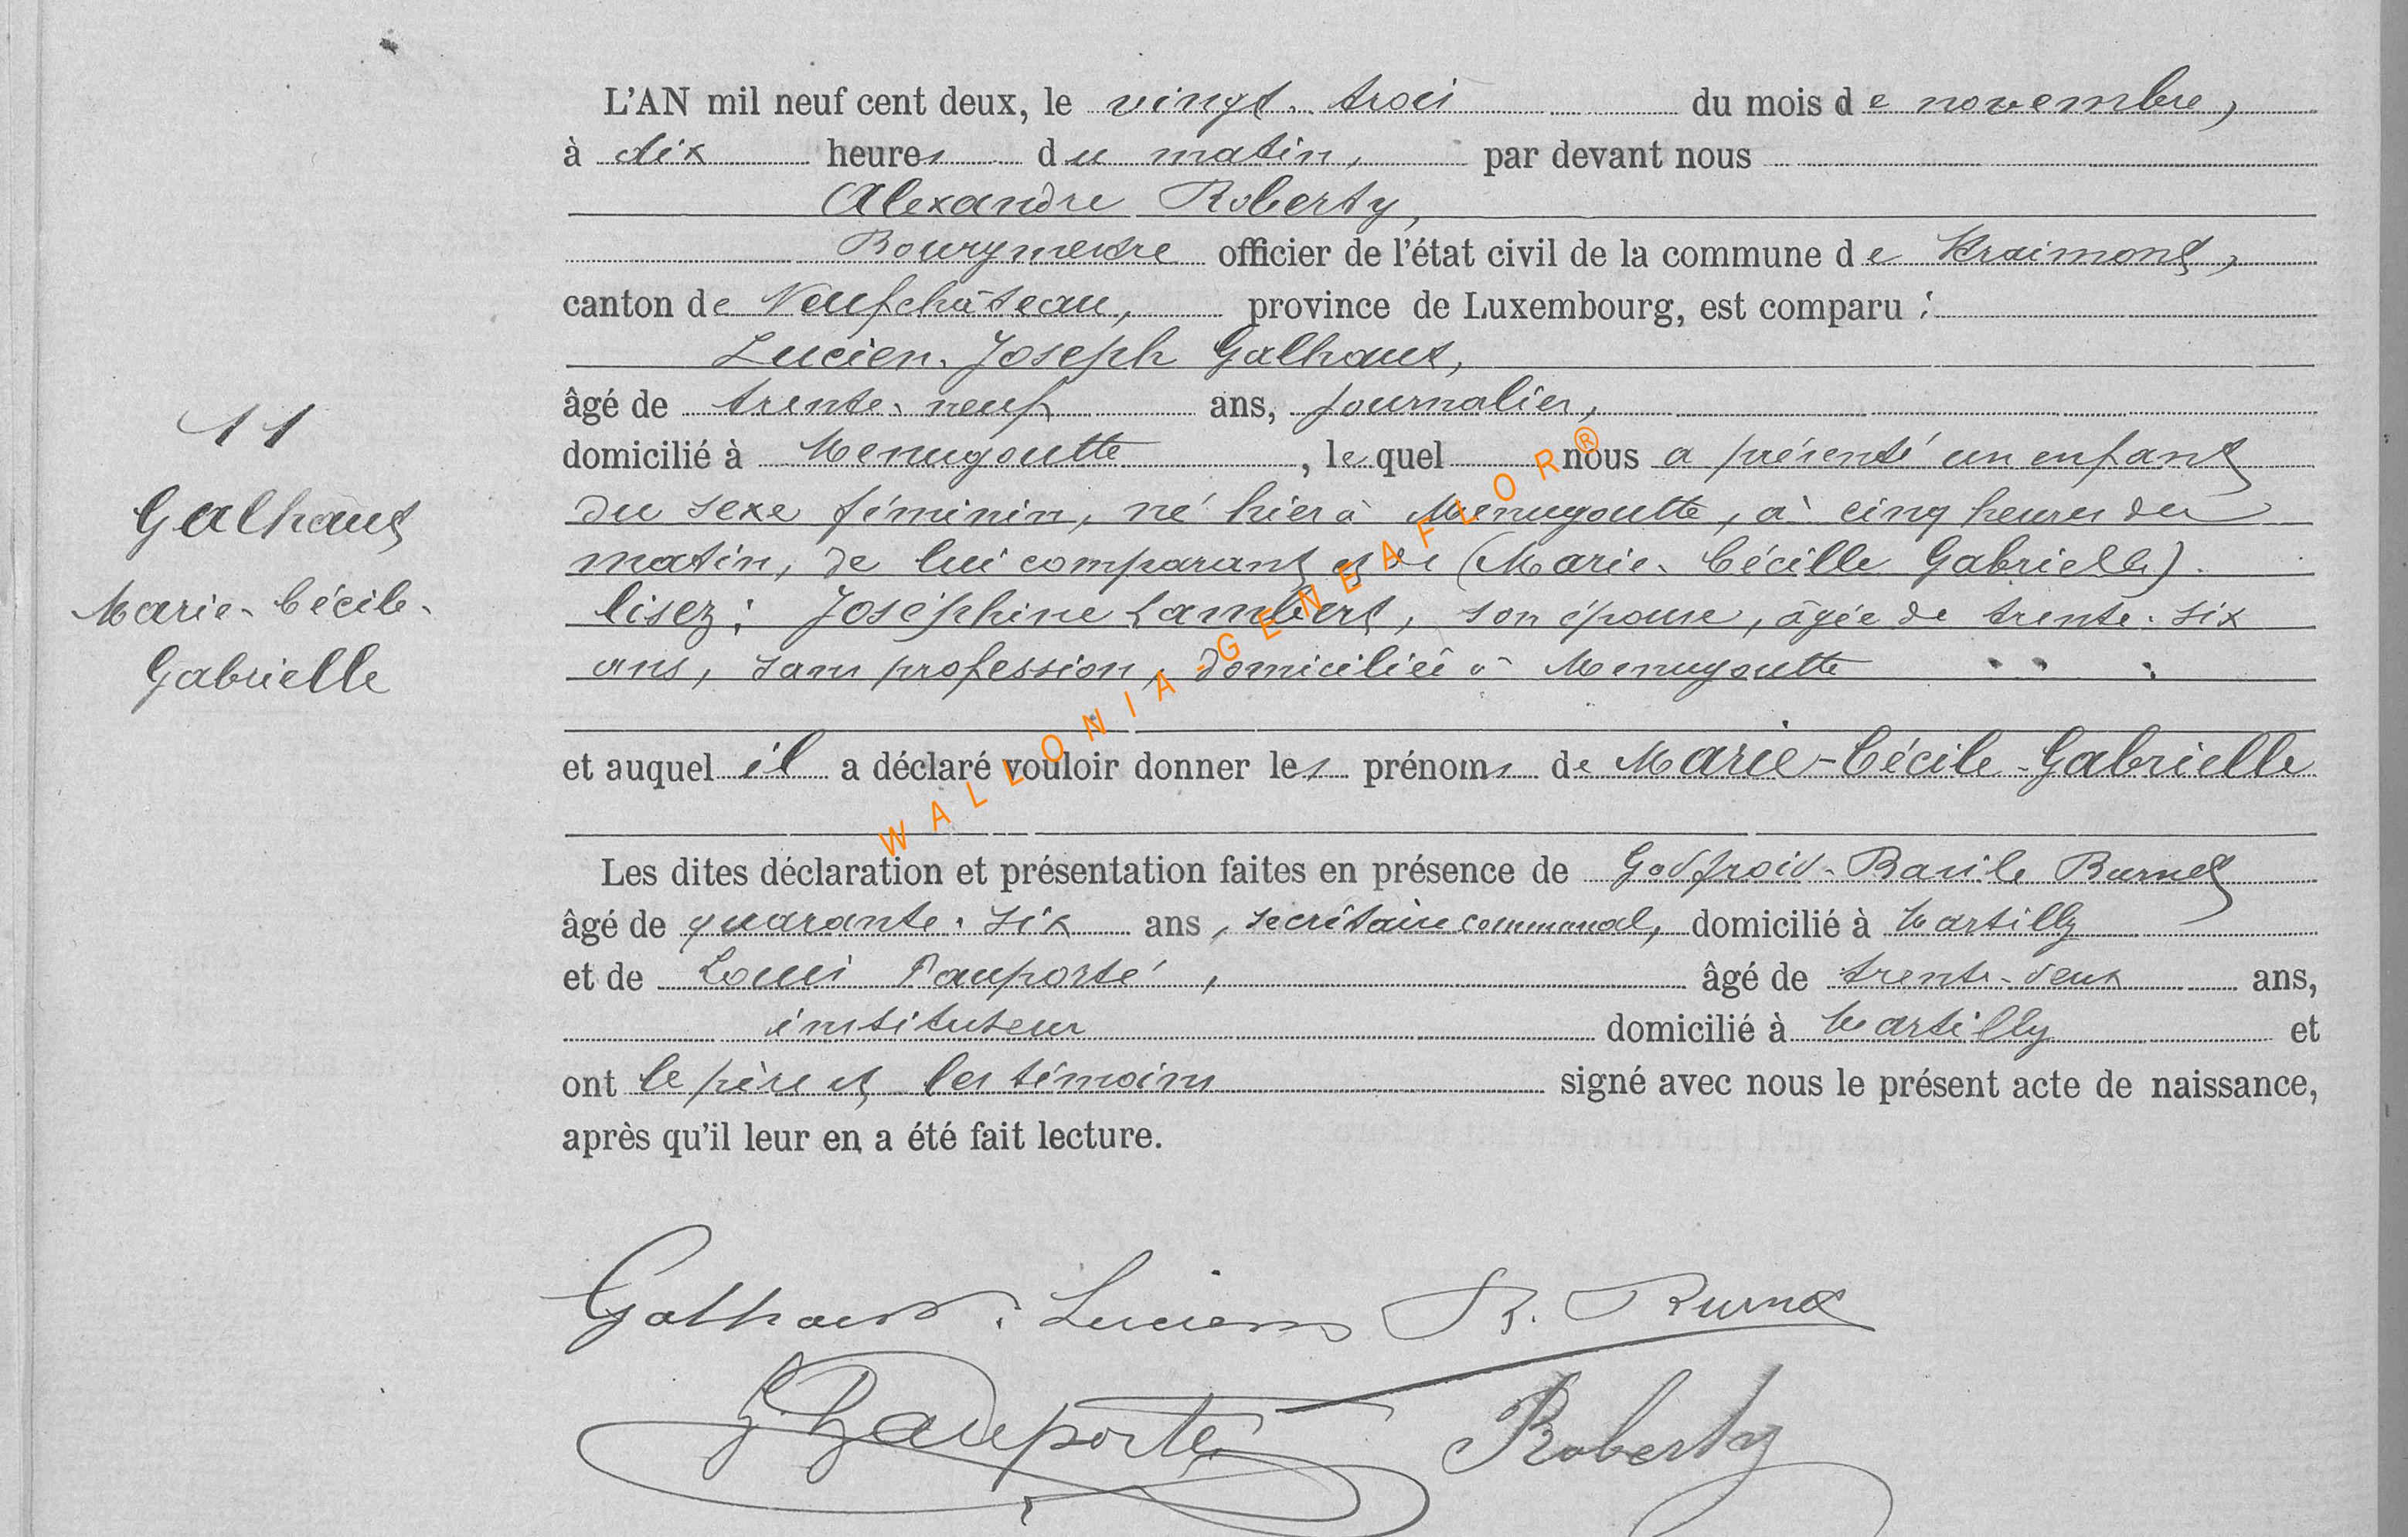 L'AN mil neuf cent deux, le vingt-trois du mois de novembre,
à dix heures du matin, par devant nous
Alexandre Roberty,
Bourgmestre officier de l'état civil de la commune de Straimont,
canton de Neufchâteau, province de Luxembourg, est comparu :
Lucien-Joseph Galhaut,
âgé de trente-neuf ans, journalier,
11
domicilié à Menugoutte, le quel nous a présenté un enfant
Galhaut
du sexe féminin, né hier à Menugoutte, à cinq heures du
matin, de lui comparant et de (Marie-Cécille Gabrielle).
Marie-Cécile-
lisez : Joséphine Lambert, son épouse, âgée de trente-six
Gabrielle
ans, sans profession, domiciliée à Menugoutte
et auquel il a déclaré vouloir donner les prénoms de Marie-Cécile-Gabrielle
Les dites déclaration et présentation faites en présence de Godfroid-Basile Burnet
âgé de quarante-six ans, secrétaire communal, domicilié à Martilly
et de Louis Pauporté, âgé de trente-deux ans,
instituteur domicilié à Martilly et
ont le père et les témoins signé avec nous le présent acte de naissance,
après qu'il leur en a été fait lecture.
Galhaut Lucien B. Burnet
Pauporté Roberty
WALLONIA-GENEAFLOR®